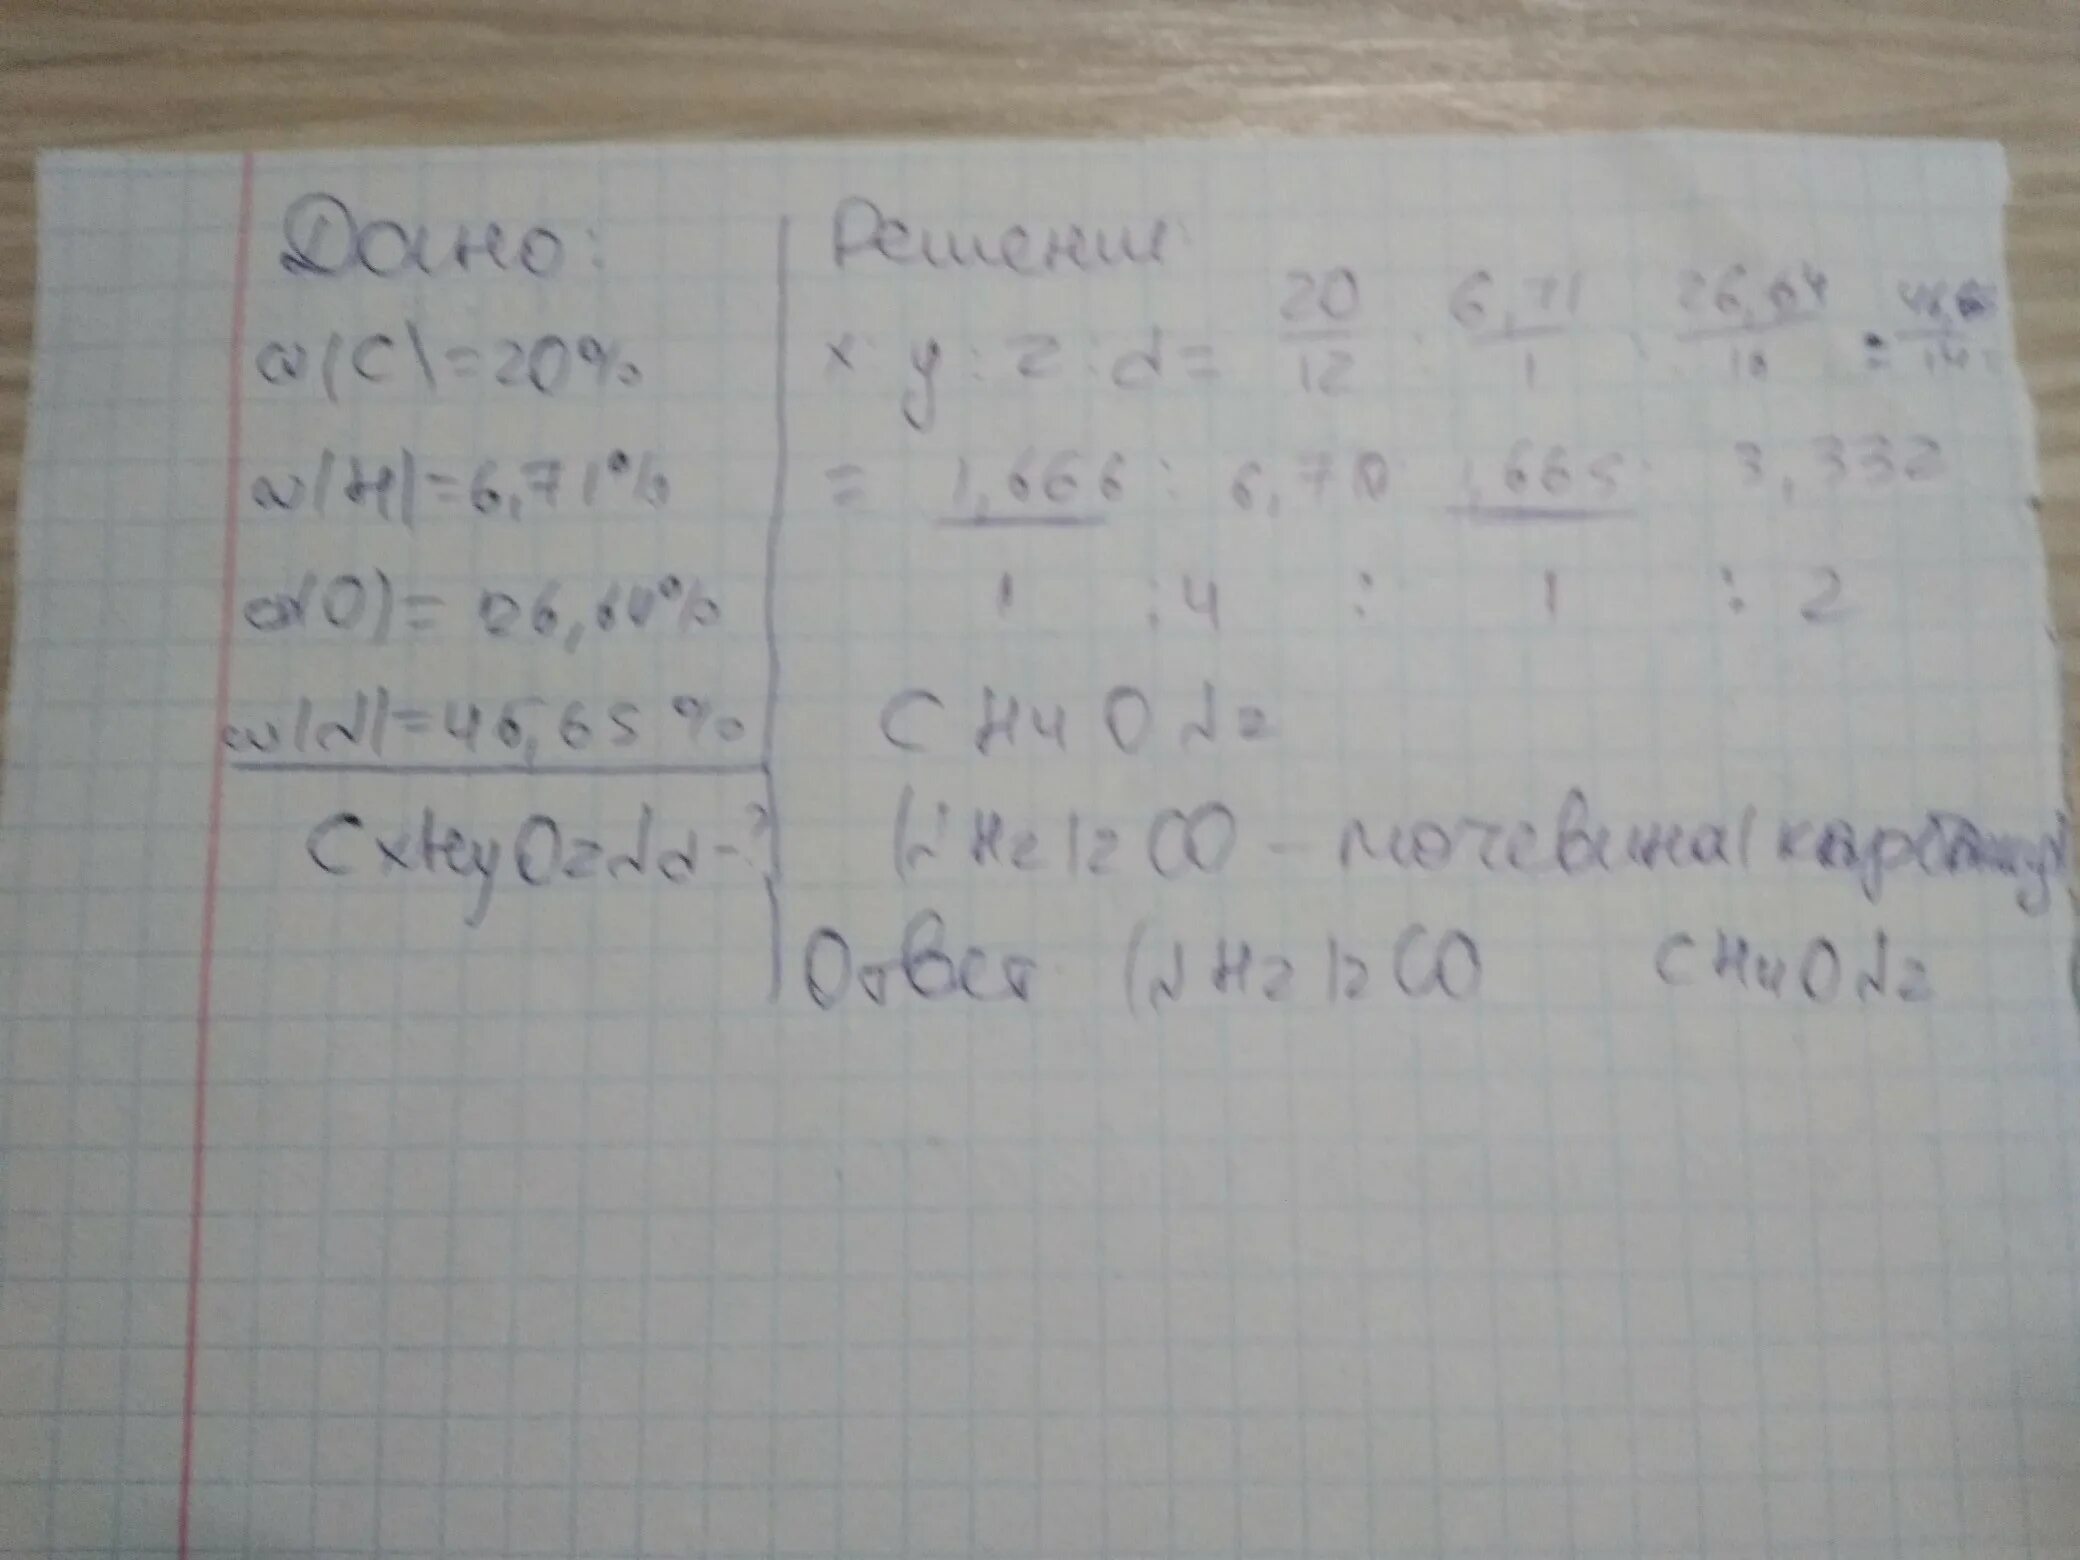 Дано:
w(C)=20%
w(H)=6,71%
w(O)=26,64%
w(N)=46,65%
CxHyOzNd-?
Решение:
x:y:z:d= 20/12 : 6,71/1 : 26,64/16 : 46,65/14 =
= 1,666 : 6,70 : 1,665 : 3,332
1 : 4 : 1 : 2
CH4ON2
(NH2)2CO - мочевина (карбамид)
Ответ: (NH2)2CO CH4ON2